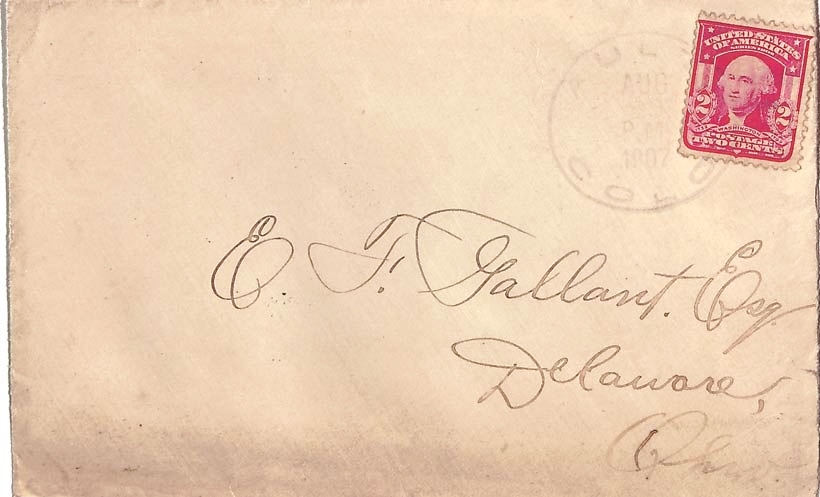 UNITED STATES
OF AMERICA
SERIES 1902
2 2
WASHINGTON
POSTAGE
TWO CENTS
AUG
P.M.
1907
COLO
E. F. Gallant. Esq.
Delaware,
Ohio.